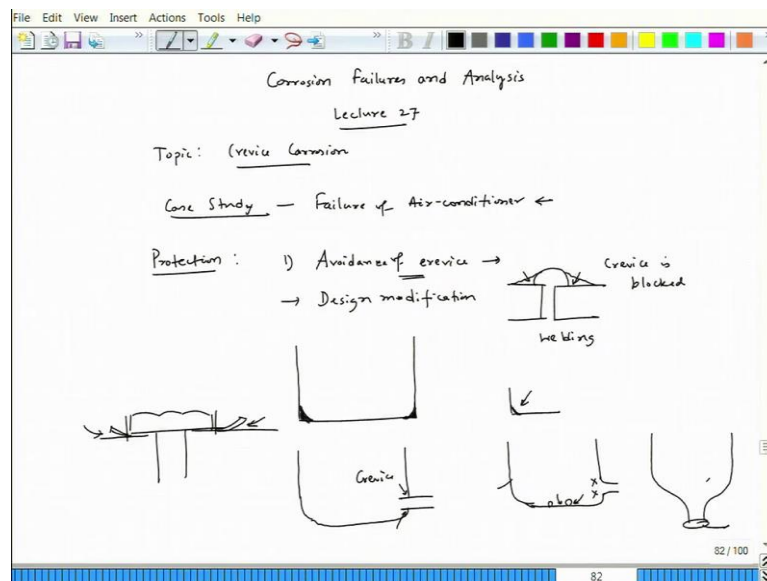 File Edit View Insert Actions Tools Help
B I
Corrosion Failures and Analysis
Lecture 27
Topic: Crevice Corrosion
Case Study — Failure of Air-conditioner ←
Protection: 1) Avoidance of crevice →
→ Design modification
Crevice is
blocked
Welding
Crevice
82 / 100
82